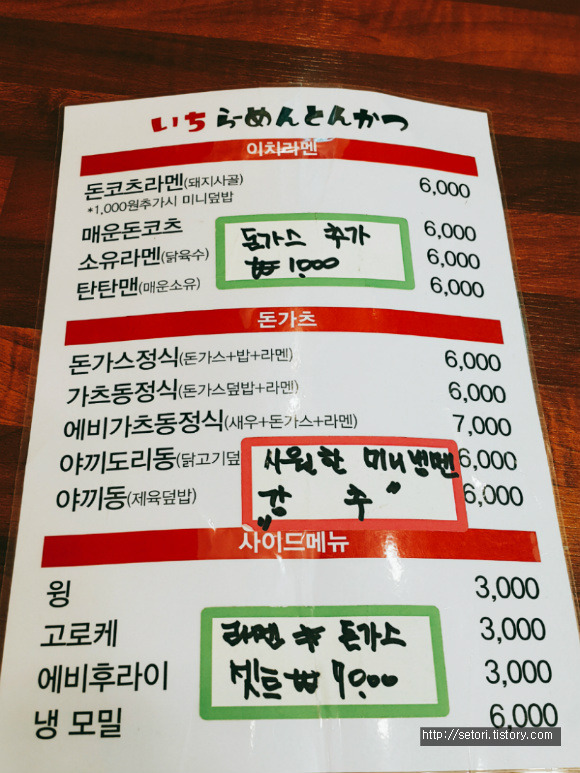 いちらーめんとんかつ
이치라멘
돈코츠라멘(돼지사골) 6,000
*1,000원추가시 미니덮밥
매운돈코츠 6,000
소유라멘(닭육수) 6,000
탄탄맨(매운소유) 6,000
돈가스 추가
₩ 1,000
돈가츠
돈가스정식(돈가스+밥+라멘) 6,000
가츠동정식(돈가스덮밥+라멘) 6,000
에비가츠동정식(새우+돈가스+라멘) 7,000
야끼도리동(닭고기덮 6,000
야끼동(제육덮밥) 6,000
사원한 미니냉멘
"강 추"
사이드메뉴
윙 3,000
고로케 3,000
에비후라이 3,000
냉 모밀 6,000
라멘 돈가스
셋트 ₩
http://setori.tistory.com